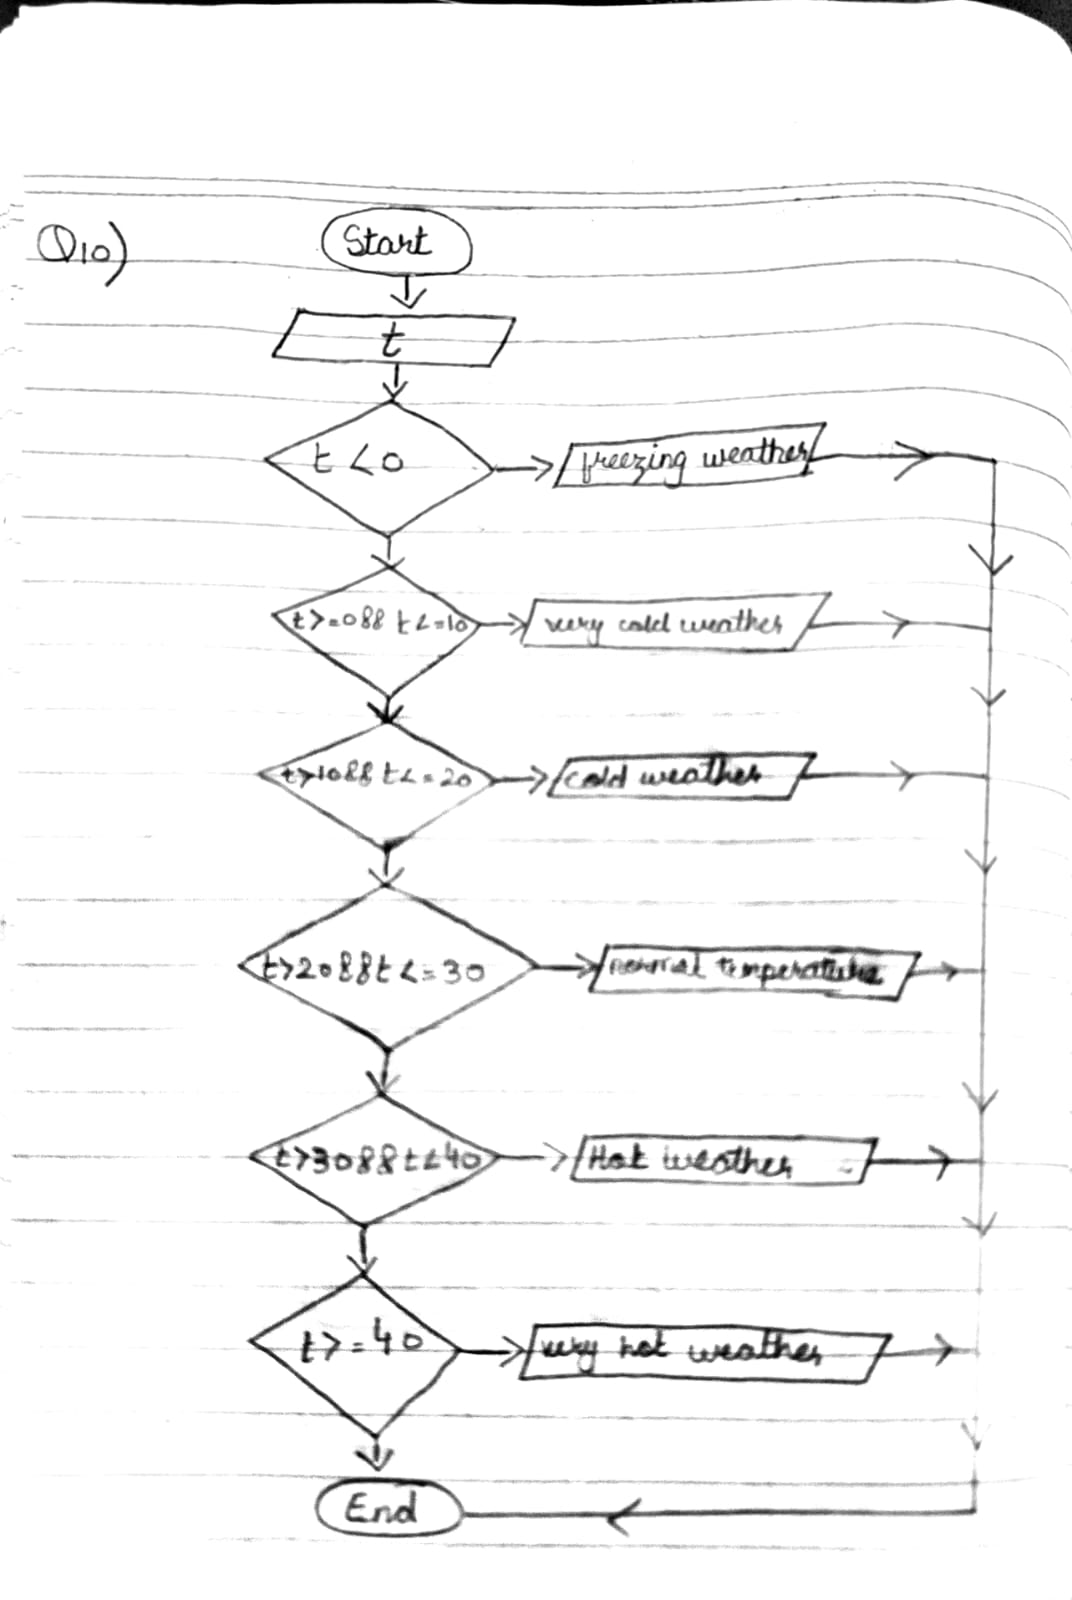 Q10)
Start
t
t<0
freezing weather
t>=0&&t<=10
very cold weather
t>10&&t<=20
cold weather
t>20&&t<=30
normal temperature
t>30&&t<40
Hot weather
t>=40
very hot weather
End